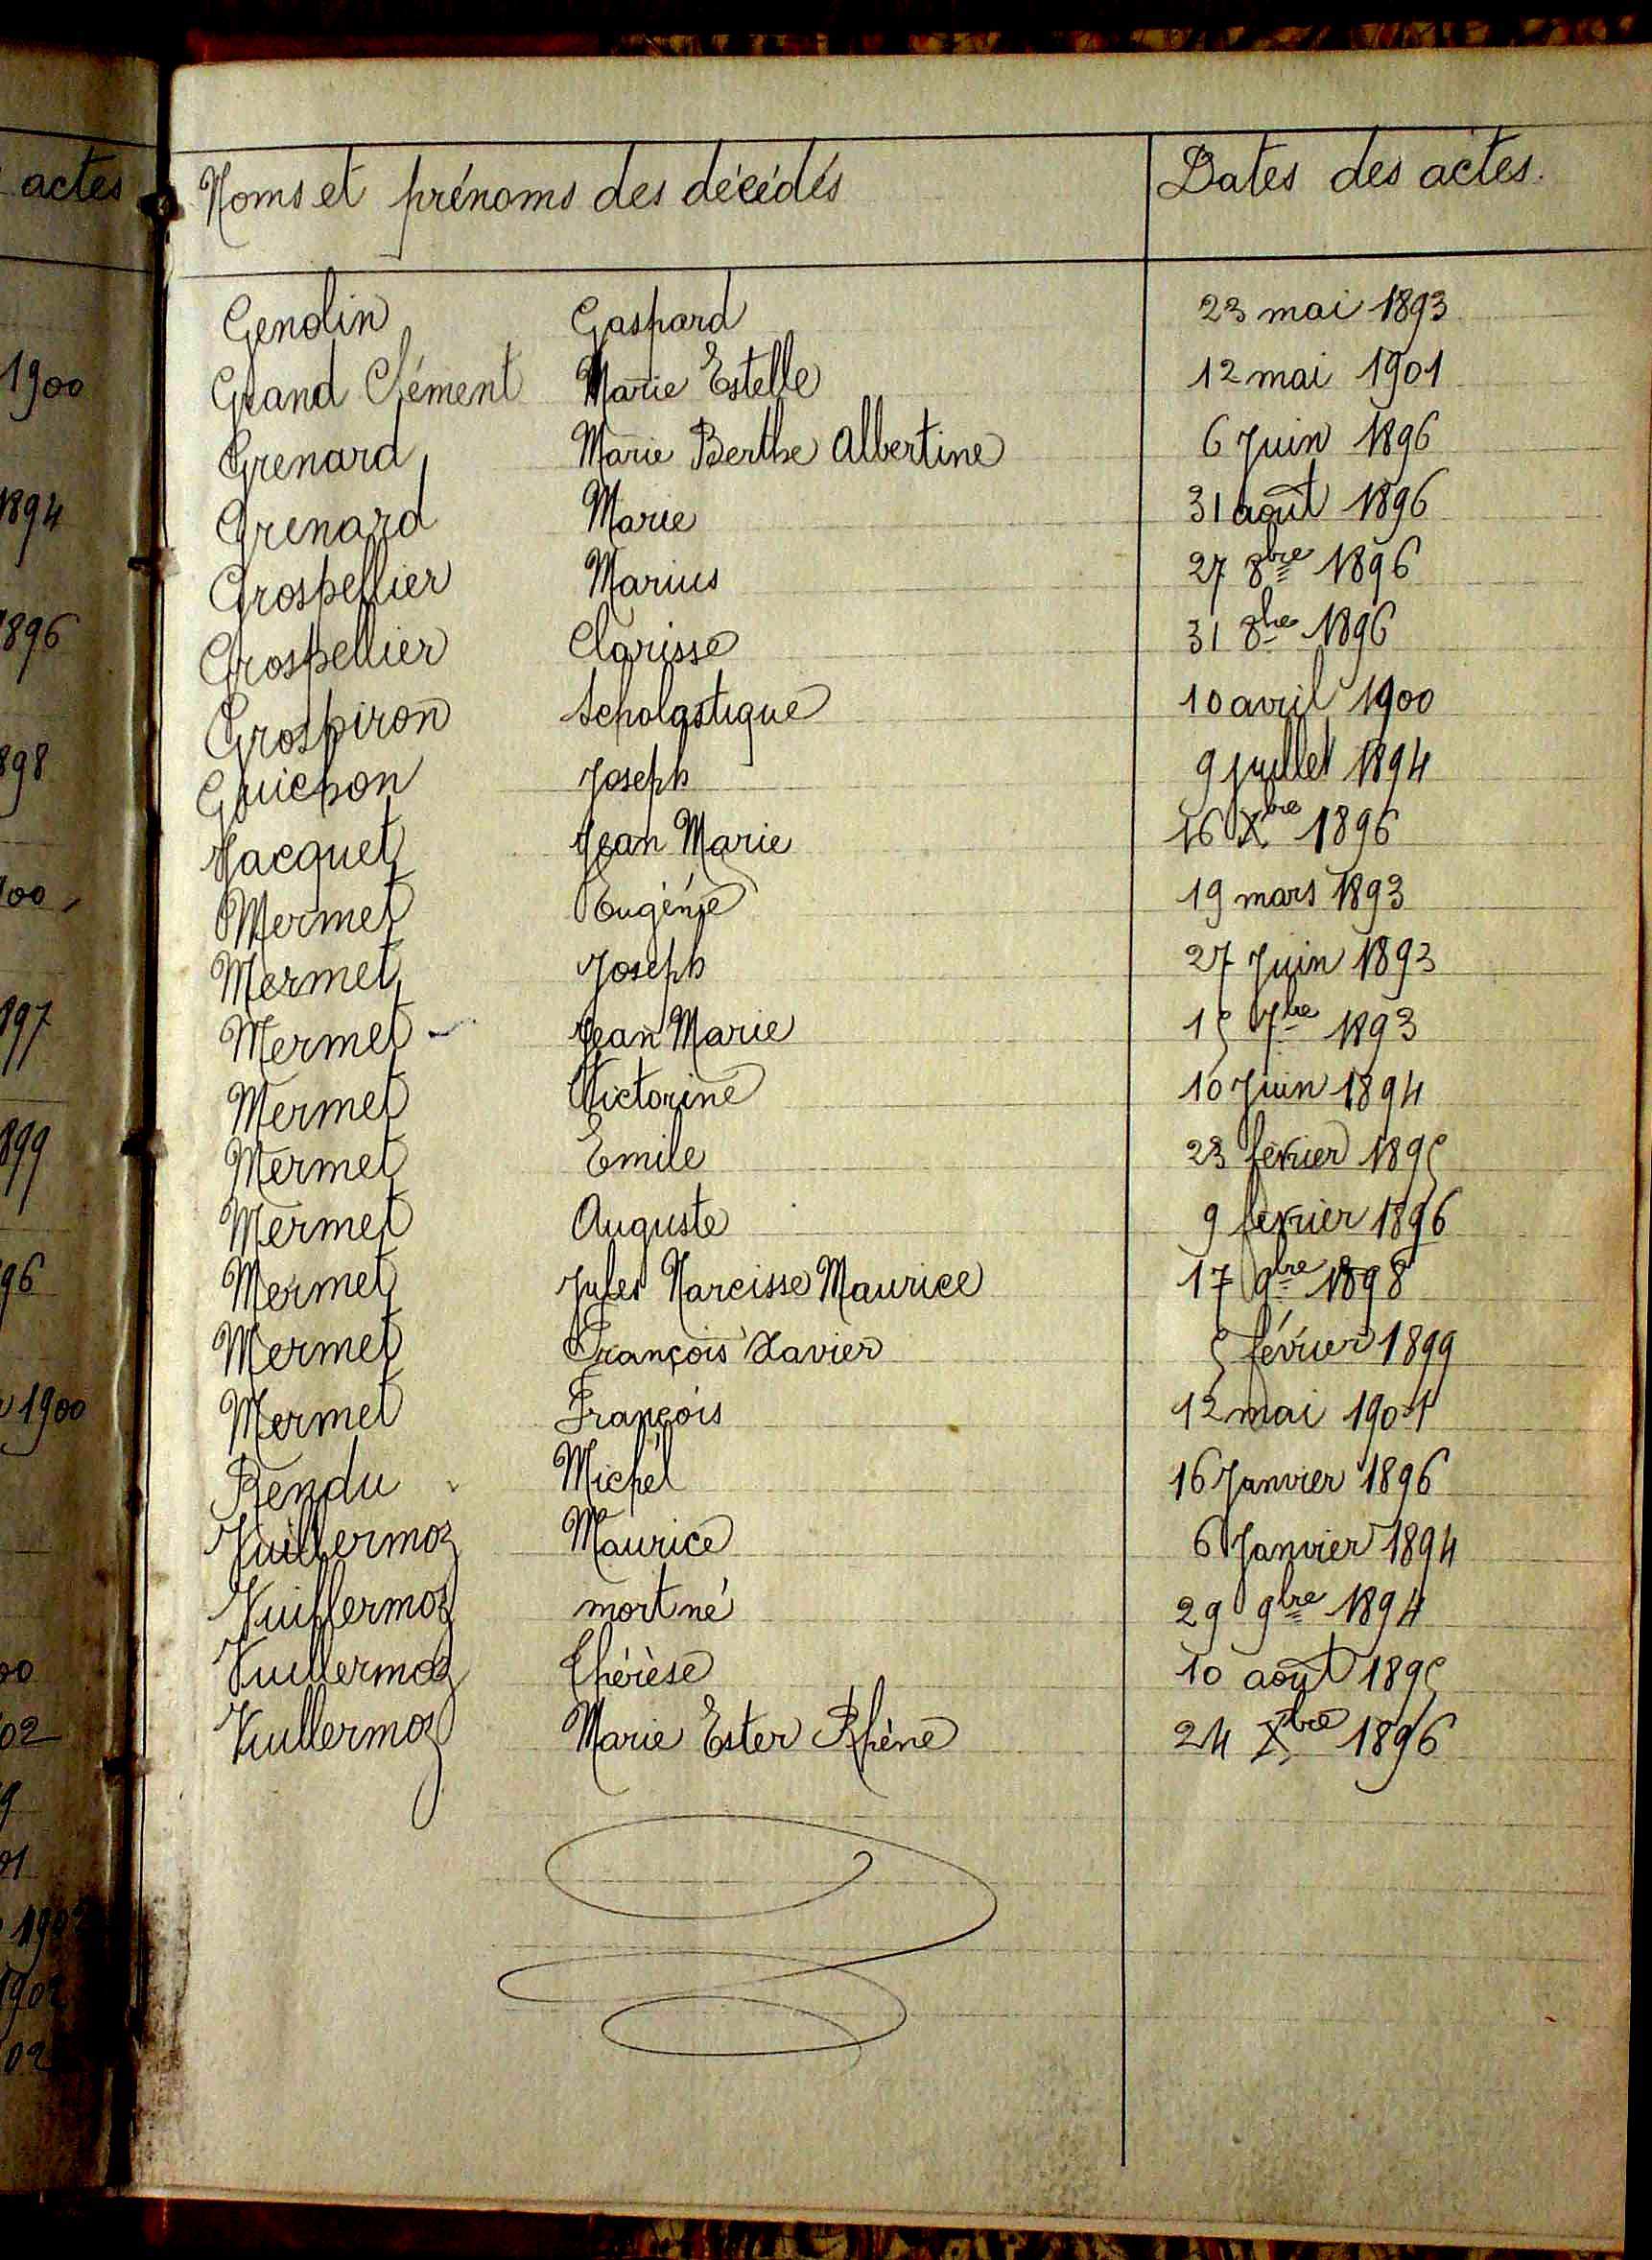 actes
1900
1894
1896
898
00
897
899
96
1900
00
02
9
01
1902
1902
02
Noms et prénoms des décédés Dates des actes.
Gendin Gaspard 23 mai 1893
Grand Clément Marie Estelle 12 mai 1901
Grenard Marie Berthe Albertine 6 Juin 1896
Grenard Marie 31 août 1896
Grospellier Marius 27 8bre 1896
Grospellier Clarisse 31 8bre 1896
Grospiron Scholastique 10 avril 1900
Guichon Joseph 9 juillet 1894
Jacquet Jean Marie 16 Xbre 1896
Mermet Eugénie 19 mars 1893
Mermet Joseph 27 Juin 1893
Mermet Jean Marie 15 7bre 1893
Mermet Victorine 10 Juin 1894
Mermet Emile 23 février 1895
Mermet Auguste 9 février 1896
Mermet Jules Narcisse Maurice 17 9bre 1898
Mermet François Xavier 5 février 1899
Mermet François 12 mai 1901
Rendu Michel 16 Janvier 1896
Vuillermoz Maurice 6 Janvier 1894
Vuillermoz mort né 29 9bre 1894
Vuillermoz Thérèse 10 août 1895
Vuillermoz Marie Ester Rhène 24 Xbre 1896